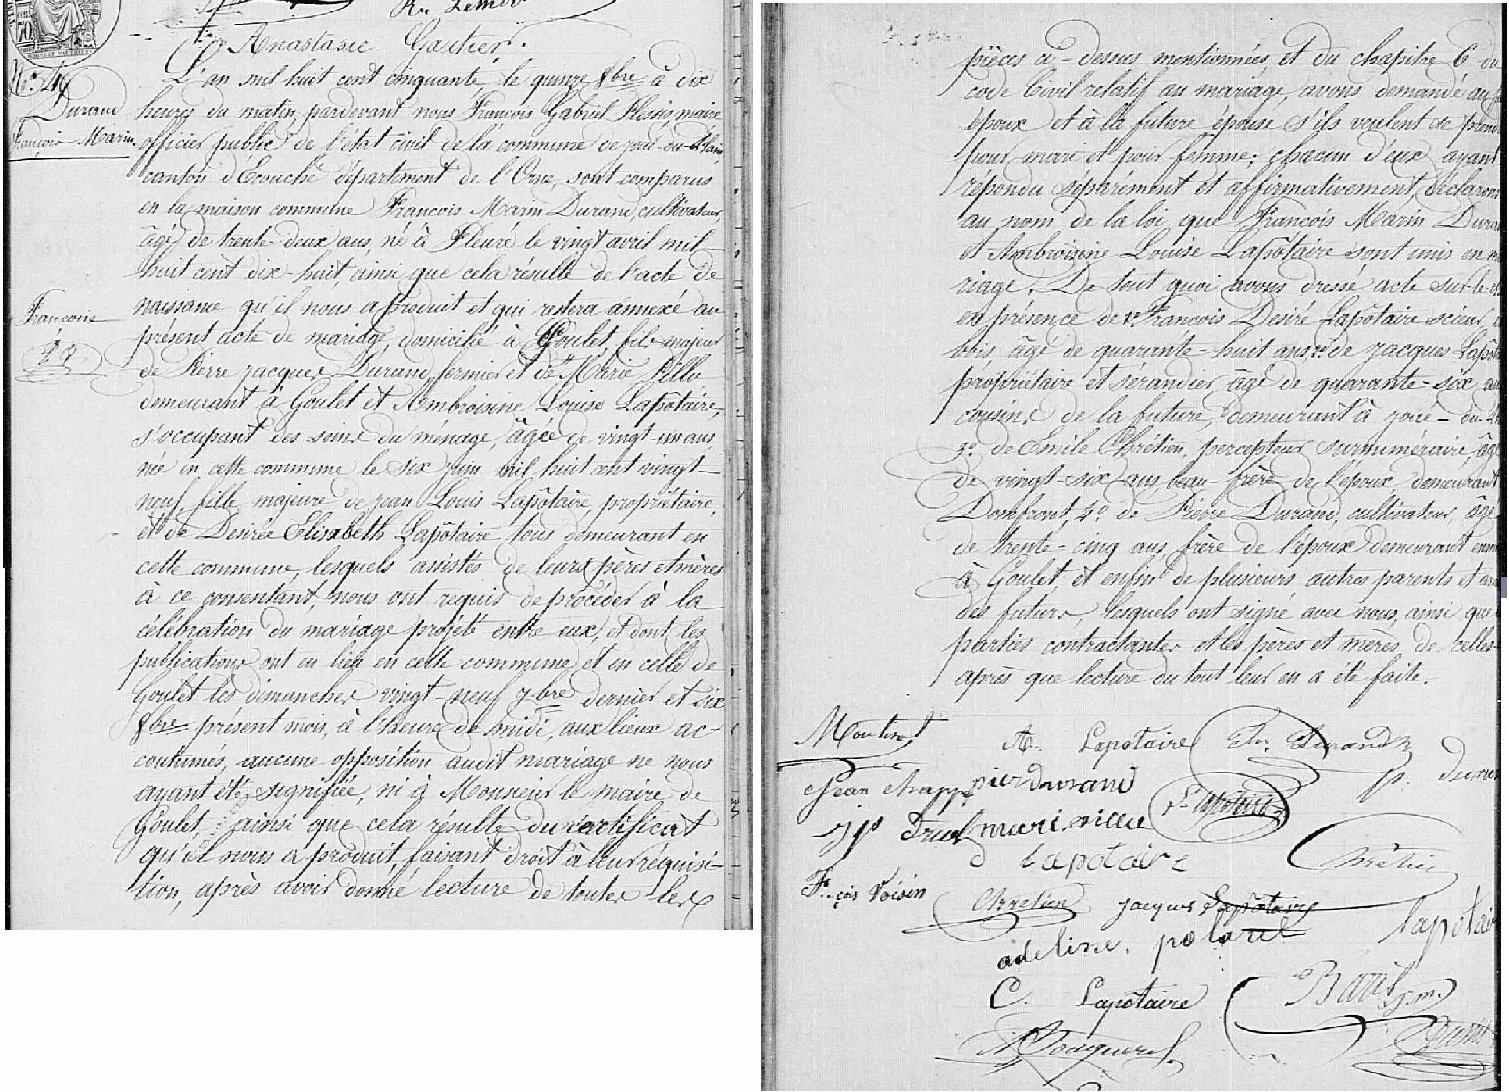 Anastasie Gautier.
N.º 14
Durand
François Marin.
L'an mil huit cent cinquante, le quinze 8bre à dix
heures du matin, pardevant nous François Gabriel Plessis, maire
officier public de l'état civil de la commune de Joué-du-Plain,
canton d'Ecouché département de l'Orne, sont comparus
en la maison commune François Marin Durand, cultivateur,
âgé de trente-deux ans, né à Fleuré le vingt avril mil
huit cent dix-huit, ainsi que cela résulte de l'acte de
naissance qu'il nous a produit et qui restera annexé au
présent acte de mariage, domicilié à Goulet, fils majeur
de Pierre Jacques Durand, fermier et de Marie
demeurant à Goulet et Ambroisine Louise Lapôtaire,
s'occupant des soins du ménage, âgée de vingt-un ans
née en cette commune le six juin mil huit cent vingt-
neuf, fille majeure de Jean Louis Lapôtaire, propriétaire,
et de Desirée Elisabeth Lapôtaire tous demeurant en
cette commune, lesquels assistés de leurs pères et mères
à ce consentant, nous ont requis de procéder à la
célébration du mariage projeté entre eux, et dont les
publications ont eu lieu en cette commune et en celle de
Goulet les dimanches vingt-neuf 7bre dernier et six
8bre présent mois, à l'heure de midi, aux lieux ac-
coutumés, aucune opposition audit mariage ne nous
ayant été signifiée, ni à Monsieur le maire de
Goulet, ainsi que cela résulte du certificat
qu'il nous a produit, faisant droit à leur réquisi-
tion, après avoir donné lecture de toutes les
Francoise
pièces ci-dessus mentionnées, et du chapitre 6 du
code Civil relatif au mariage, avons demandé au
époux et à la future épouse s'ils veulent se
pour mari et pour femme; chacun d'eux ayant
répondu séparément et affirmativement, déclarons
au nom de la loi que François Marin
et Ambroisine Louise Lapôtaire sont unis en
riage. De tout quoi avons dressé acte sur-le
en présence de 1º François Desiré Lapôtaire scieur
bois âgé de quarante-huit ans, 2º de Jacques
propriétaire et sérandier âgé de quarante-six
cousins de la future, demeurant à Joué-du-
3º de Emile Chrétien, percepteur surnuméraire,
de vingt-six ans beau frère de l'époux demeurant
Domfront, 4º de Pierre Durand, cultivateur, âgé
de trente-cinq ans frère de l'époux demeurant
à Goulet et enfin de plusieurs autres parents et
des futurs, lesquels ont signé avec nous, ainsi que
parties contractantes et les pères et mères de celles-
après que lecture du tout leur en a été faite.
A. Lapotaire
Durand
pier durand
Jean
Lapôtaire
lapotaire
Chrétien
F.çois Voisin
Chretien
jacques Lapôtaire
adeline.
C. Lapôtaire